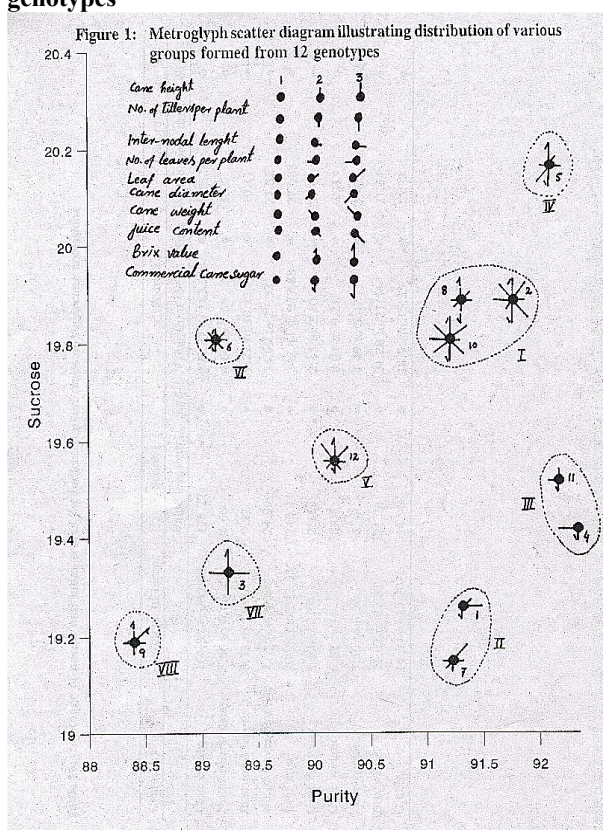 genotypes
Figure 1: Metroglyph scatter diagram illustrating distribution of various
groups formed from 12 genotypes
20.4
20.2
20
19.8
19.6
19.4
19.2
19
Sucrose
1 2 3
Cane height
No. of tillers per plant
Inter-nodal lenght
No. of leaves per plant
Leaf area
Cane diameter
Cane weight
Juice content
Brix value
Commercial Cane sugar
5
IV
8 2
10
I
6
VI
12
V
11
III
4
3
VII
1
II
7
9
VIII
88 88.5 89 89.5 90 90.5 91 91.5 92
Purity